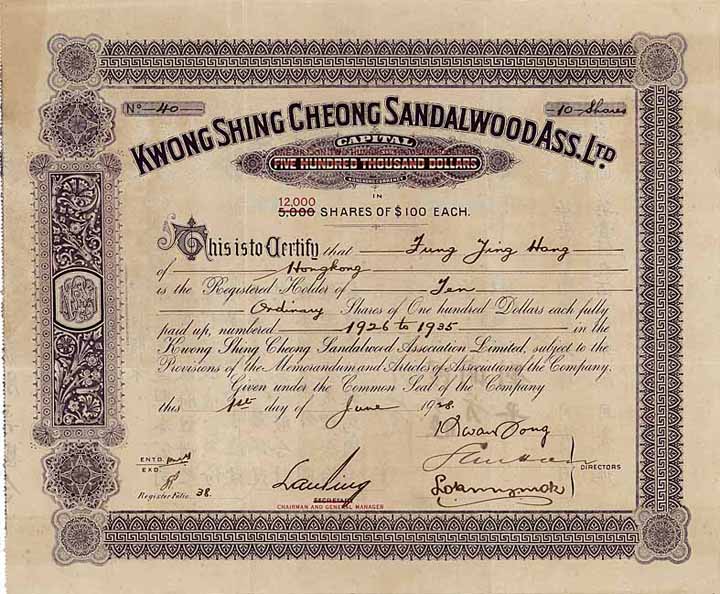 No 40
10 Shares
KWONG SHING CHEONG SANDALWOOD ASS. LTD.
CAPITAL
FIVE HUNDRED THOUSAND DOLLARS
IN
12,000
5,000 SHARES OF $100 EACH.
This is to Certify that Fung Jing Hang
of Hongkong
is the Registered Holder of Ten
Ordinary Shares of One hundred Dollars each fully
paid up, numbered 1926 to 1935 in the
Kwong Shing Cheong Sandalwood Association Limited, subject to the
Provisions of the Memorandum and Articles of Association of the Company.
Given under the Common Seal of the Company
this 1st day of June 1928
ENTD.
EXD.
Register Folio 38.
SECRETARY
CHAIRMAN AND GENERAL MANAGER
DIRECTORS